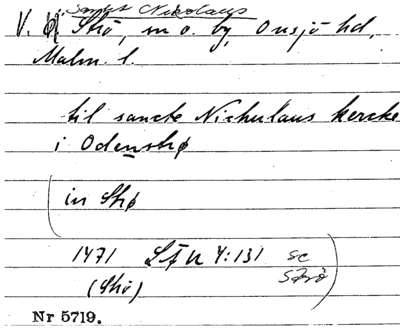 Sankt Nikolaus
V. Strö, sn o. by, Onsjö hd,
Malm. l.
til sancte Nichulaus kercke
i Odenstrø
(in Strø
1471 SFU 4:131 sc
(Strö) Strö)
Nr 5719.